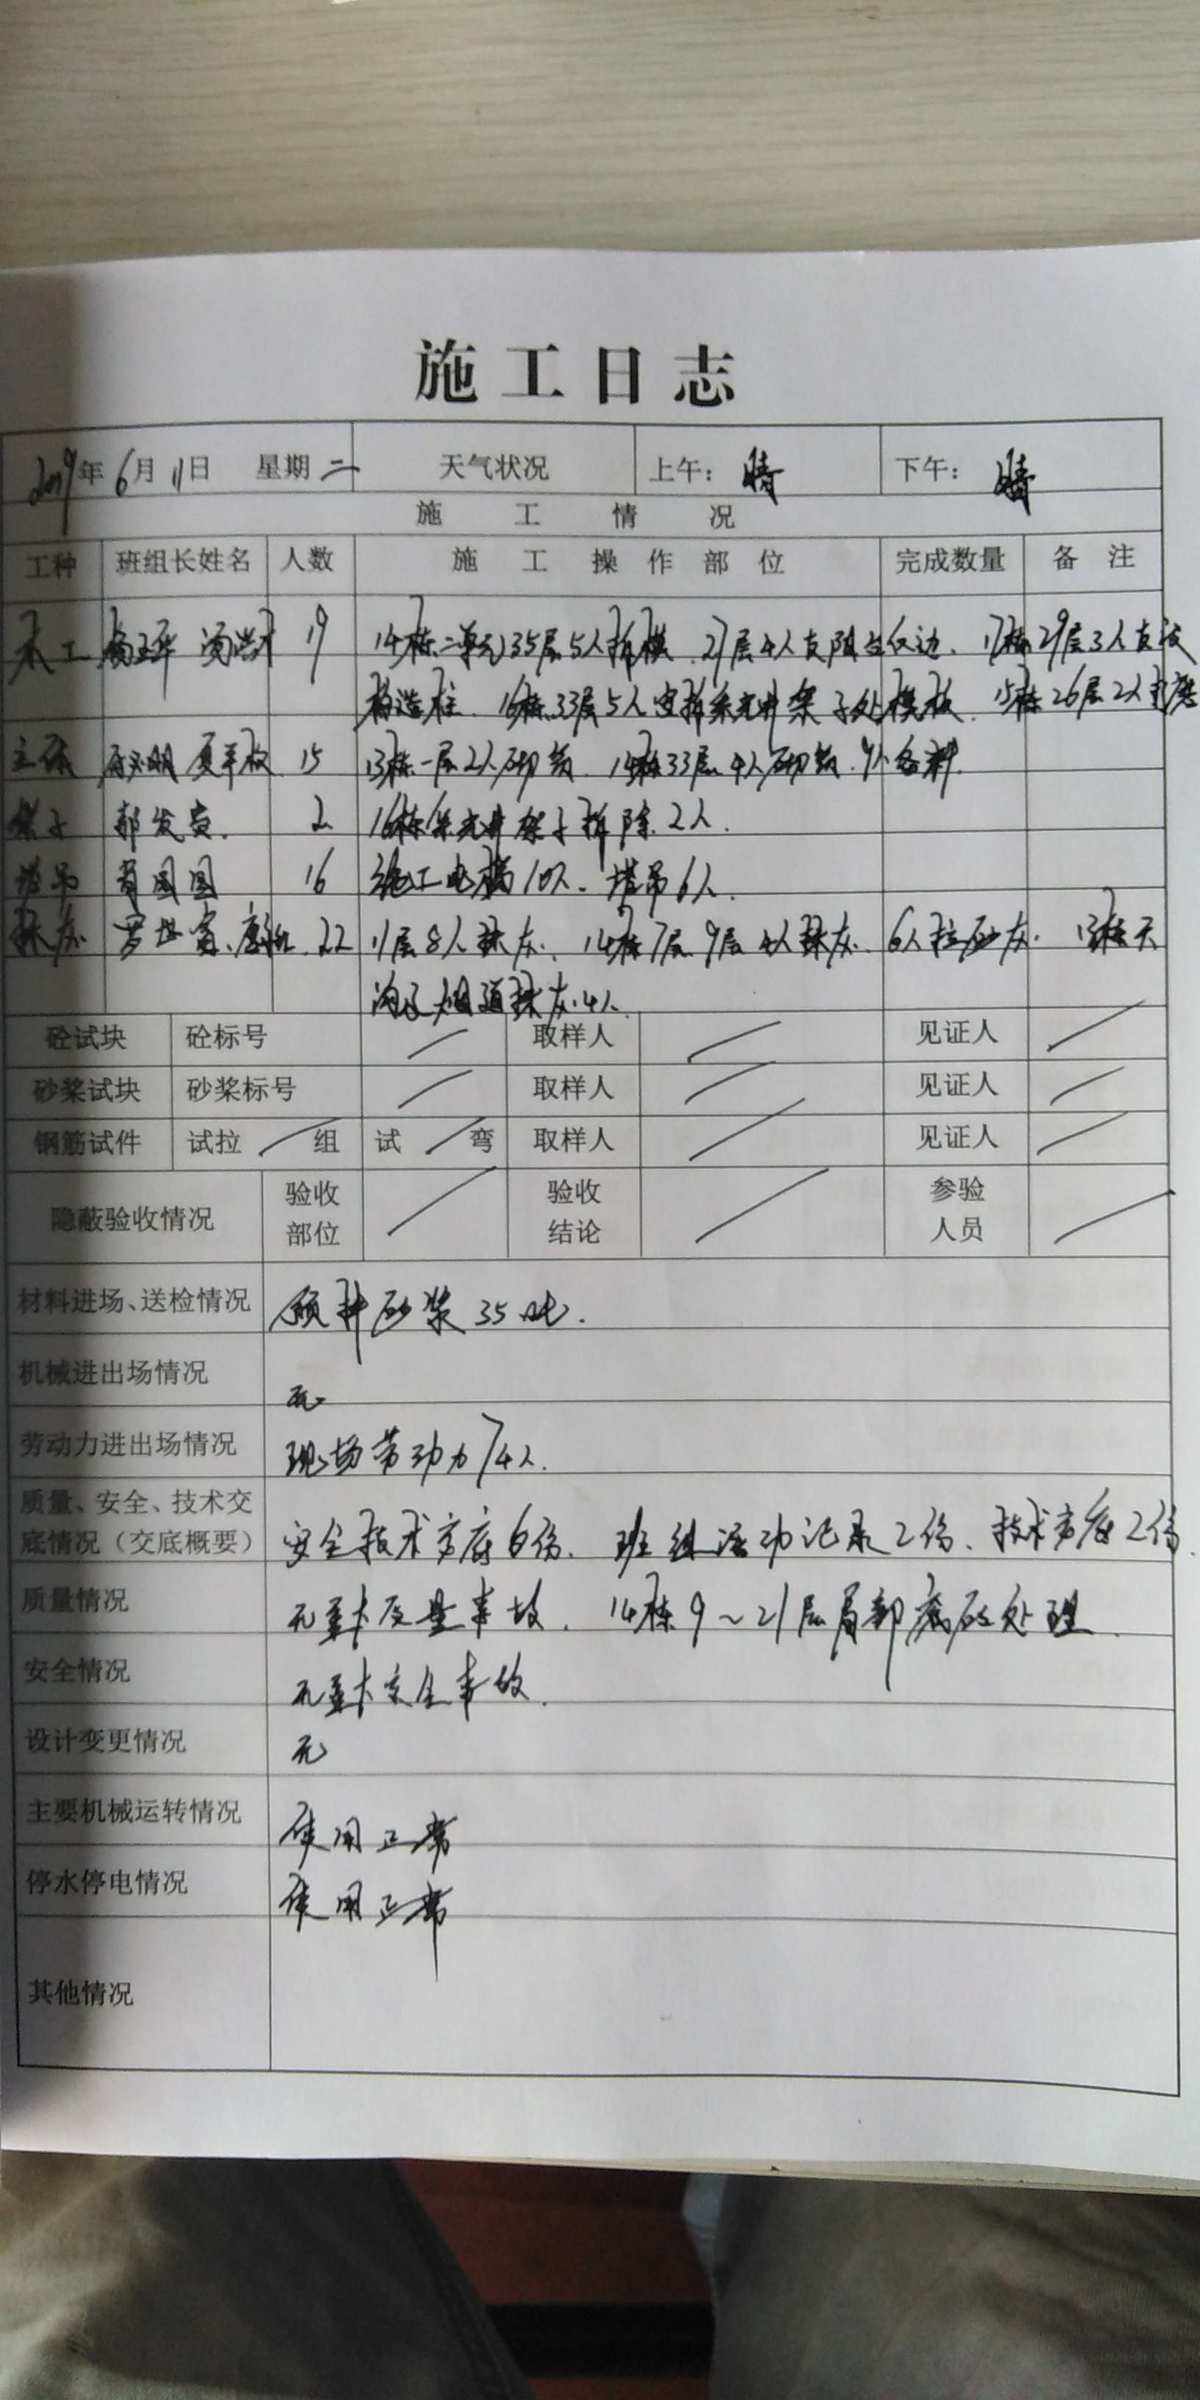 施工日志
2019年6月11日 星期二 天气状况 上午：晴 下午：晴
施工情况
工种 班组长姓名 人数 施工操作部位 完成数量 备注
木工 19 14栋二单元35层5人拆模、27层4人支阳台反边、17栋29层3人支设
构造柱、16栋33层5人 拆采光井架子处模板、15栋26层2人打磨
主体 15 13栋一层2人砌筑、14栋33层4人砌筑、9人备料.
架子 郭发贵. 2 16栋采光井架子拆除2人.
塔吊 肖国国 16 施工电梯10人、塔吊6人.
抹灰 22 11层8人抹灰、14栋7层9层4人抹灰、6人拉砂灰、13栋天
沟及烟道抹灰4人.
砼试块 砼标号 / 取样人 / 见证人 /
砂桨试块 砂桨标号 / 取样人 / 见证人 /
钢筋试件 试拉 / 组 试 / 弯 取样人 / 见证人 /
隐蔽验收情况 验收部位 / 验收结论 / 参验人员 /
材料进场、送检情况 预拌砂浆35吨.
机械进出场情况 无
劳动力进出场情况 现场劳动力74人.
质量、安全、技术交
底情况（交底概要） 安全技术交底6份、班组活动记录2份、技术交底2份.
质量情况 无重大质量事故、14栋9～21层局部底砖处理.
安全情况 无重大安全事故.
设计变更情况 无
主要机械运转情况 使用正常
停水停电情况 使用正常
其他情况